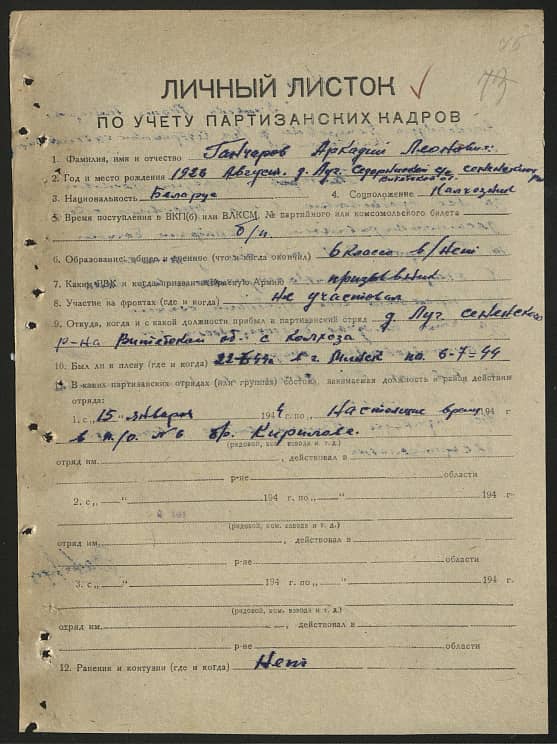 ЛИЧНЫЙ ЛИСТОК
ПО УЧЕТУ ПАРТИЗАНСКИХ КАДРОВ
1. Фамилия, имя и отчество Ганчаров Аркадий Леонович
2. Год и место рождения 1926 Август. д. Луг. с/с сенненского р-н
Витебской об.
3. Национальность Беларус 4. Соцположение Калхозник
5. Время поступления в ВКП(б) или ВЛКСМ, № партийного или комсомольского билета
б/п
6. Образование: общее и военное (что и когда окончил) 6 классов в/нет
7. Каким РВК и когда призван в Красную Армию призывник
8. Участие на фронтах (где и когда) не участовал
9. Откуда, когда и с какой должности прибыл в партизанский отряд д. Луг сененского
р-на Витебской об. с колхоза
10. Был ли в плену (где и когда) в г. Минск по 6-7-44
11. В каких партизанских отрядах (или группах) состоял, занимаемая должность и район действий
отряда:
1. с „15" января 194 4 г. по „ настоящие время 194 г
в п/о. № 6 бр. Кирилова.
(рядовой, ком. взвода и т. д.)
отряд им. , действовал в
р-не области
2. с „ " 194 г. по „ " 194 г-
(рядовой, ком. взвода и т. д.)
отряд им. , действовал в
р-не области
3. с „ " 194 г. по „ " 194 г.
(рядовой, ком. взвода и т. д.)
отряд им. , действовал в
р-не области
12. Ранения и контузии (где и когда) Нет